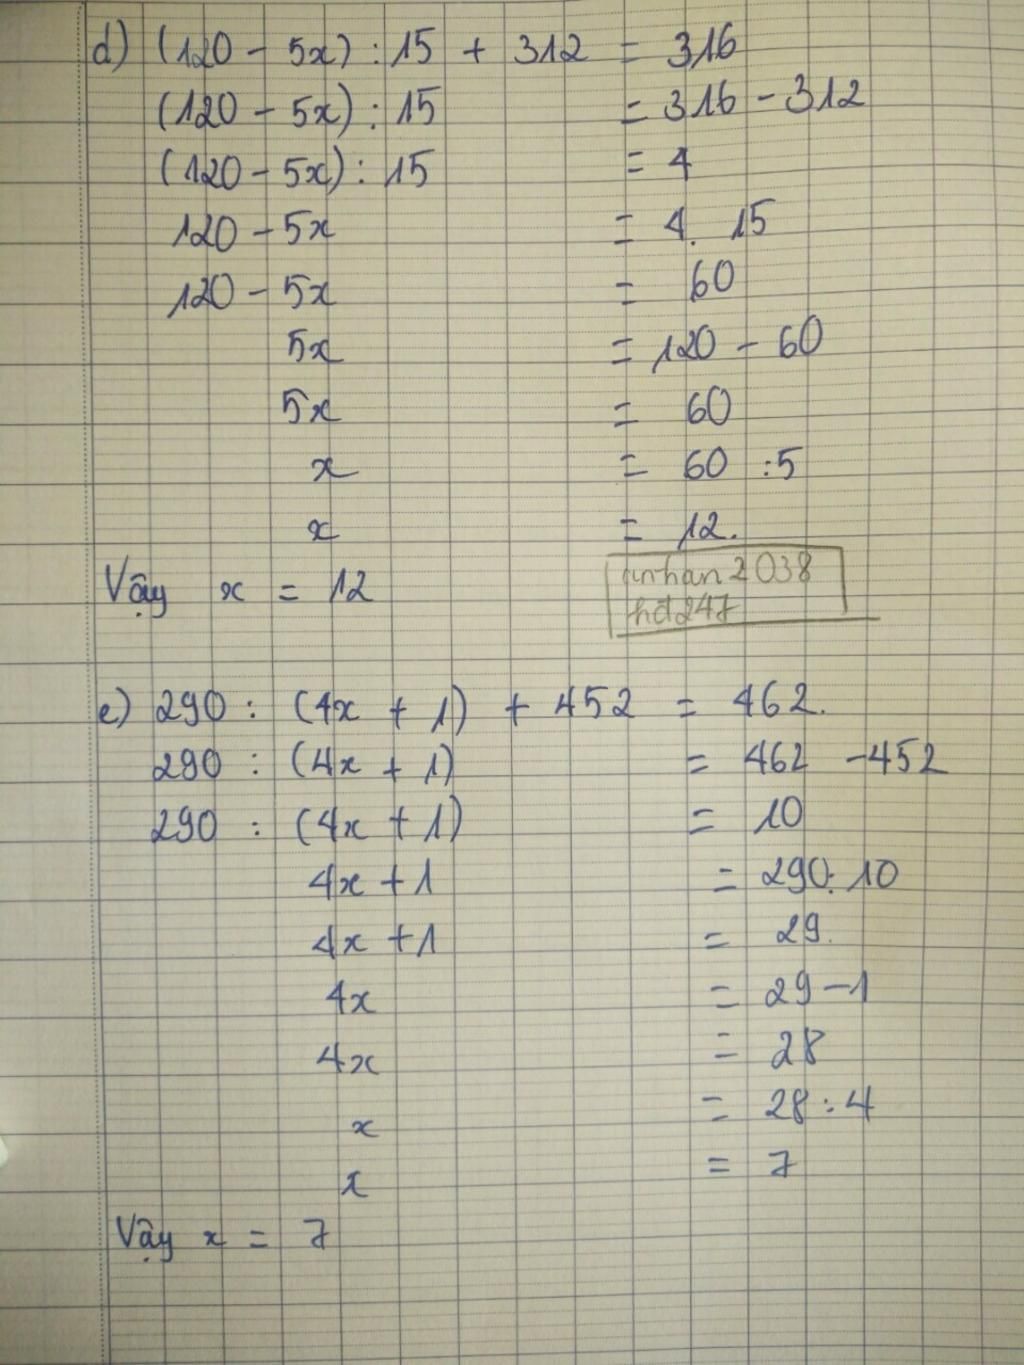 d) (120 - 5x) : 15 + 312 = 316
(120 - 5x) : 15 = 316 - 312
(120 - 5x) : 15 = 4
120 - 5x = 4. 15
120 - 5x = 60
5x = 120 - 60
5x = 60
x = 60 :5
x = 12.
Vậy x = 12
anhan2038
hd247
e) 290 : (4x + 1) + 452 = 462.
290 : (4x + 1) = 462 -452
290 : (4x + 1) = 10
4x + 1 = 290: 10
4x + 1 = 29.
4x = 29 - 1
4x = 28
x = 28 : 4
x = 7
Vậy x = 7